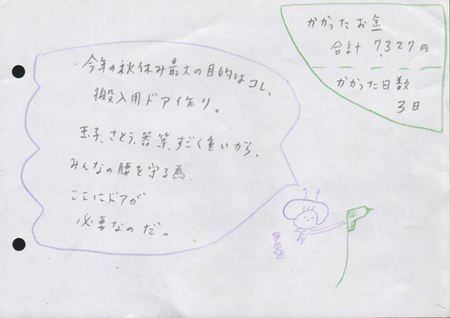 かかったお金
合計 7327円
かかった日数
3日
今年の秋休み最大の目的はコレ、
搬入用ドア作り。
玉子、さとう、器等、すごく重いから、
みんなの腰を守る為、
ここにドアが
必要なのだ。